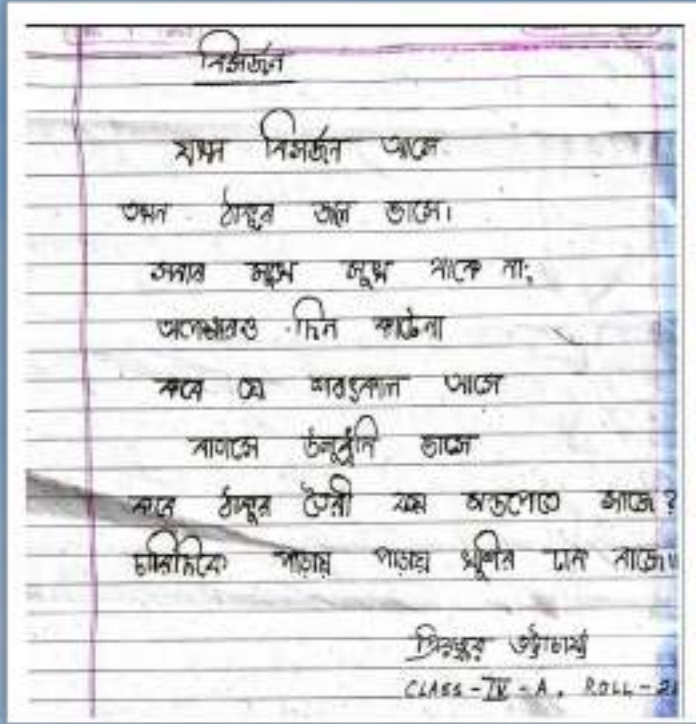 বিসর্জন
যখন বিসর্জন আসে
তখন ঠাকুর জলে ভাসে।
সবার মনে সুখ থাকে না;
অপেক্ষারও দিন কাটেনা
কবে যে শরৎকাল আসে
বাতাসে উলুধ্বনি ভাসে
কবে ঠাকুর তৈরী হয় মন্ডপেতে সাজে?
চারিদিকে পাড়ায় পাড়ায় খুশির ঢাক বাজে॥
ভট্টাচার্য্য
CLASS - IV - A. ROLL -